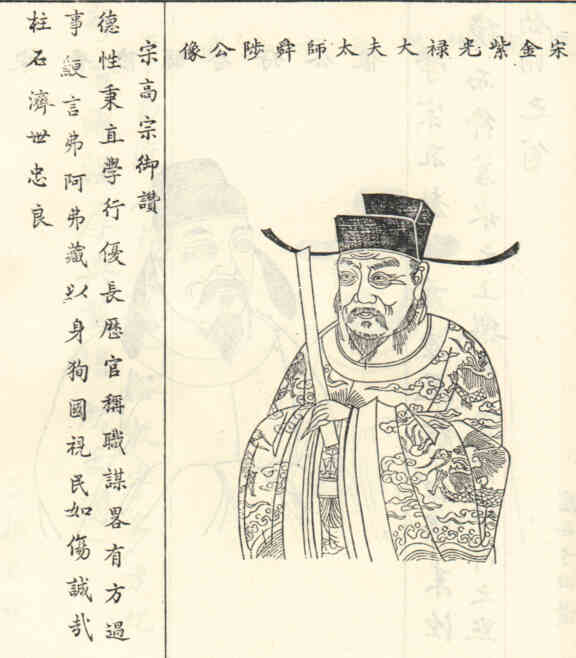 宋金紫光禄大夫太師舜陟公像
宗高宗御讚
德性秉直學行優長歷官稱職謀畧有方過
事鯁言弗阿弗藏以身狗國視民如傷誠哉
柱石濟世忠良